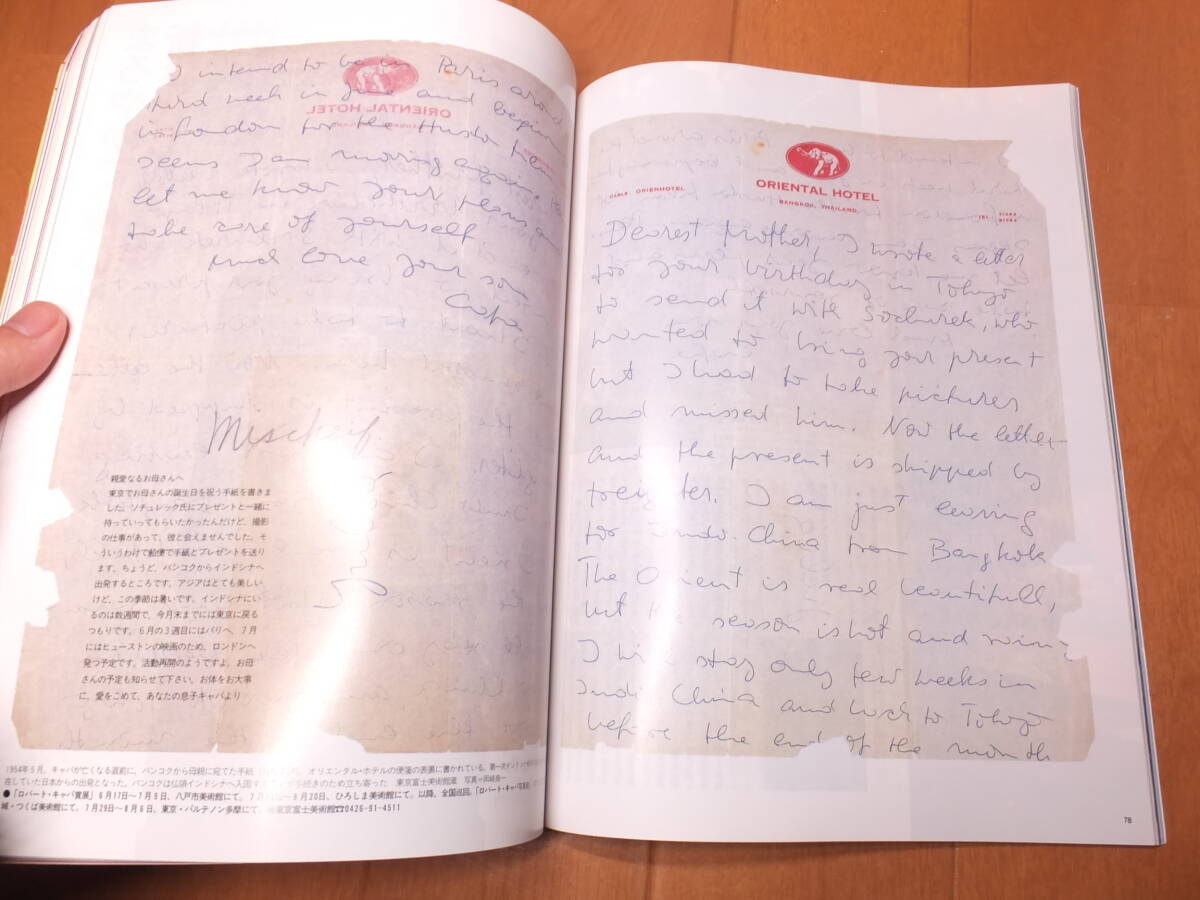 ORIENTAL HOTEL
BANGKOK, THAILAND
CABLE: ORIENHOTEL
Dearest Mother, I wrote a letter
for your birthday in Tokyo
to send it with Sochurek, who
wanted to bring your present
but I had to take pictures
and missed him. Now the letter
and the present is shipped by
freighter. I am just leaving
for Indo-China from Bangkok
The Orient is real beautifull,
but the season is hot and
I will stay only few weeks in
Indo China and back to Tokyo
before the end of the month
78
I intend to be in Paris
third week in June and begin
in London for the Huston
seems I am moving again.
let me know your plans
take care of yourself.
Much love your son
Capa
Mischeif
親愛なるお母さんへ
東京でお母さんの誕生日を祝う手紙を書きま
した。ソチュレック氏にプレゼントと一緒に
持っていってもらいたかったんだけど、撮影
の仕事があって、彼と会えませんでした。そ
ういうわけで船便で手紙とプレゼントを送り
ます。ちょうど、バンコクからインドシナへ
出発するところです。アジアはとても美しい
けど、この季節は暑いです。インドシナにい
るのは数週間で、今月末までには東京に戻る
つもりです。6月の3週目にはパリへ、7月
にはヒューストンの映画のため、ロンドンへ
発つ予定です。活動再開のようですよ。お母
さんの予定も知らせて下さい。お体をお大事
に。愛をこめて、あなたの息子キャパより
1954年5月、キャパが亡くなる直前に、バンコクから母親に宛てた手紙 オリエンタル・ホテルの便箋の表裏に書かれている。
在していた日本からの出発となった。バンコクは仏領インドシナへ入国す 手続きのため立ち寄った 東京富士美術館蔵
●「ロバート・キャパ賞展」6月17日〜7月9日、八戸市美術館にて。7月 〜8月20日、ひろしま美術館にて。以降、全国巡回。「ロバート・キャパ写真
城・つくば美術館にて。7月29日〜8月6日、東京・パルテノン多摩にて。 東京富士美術館☎0426-91-4511